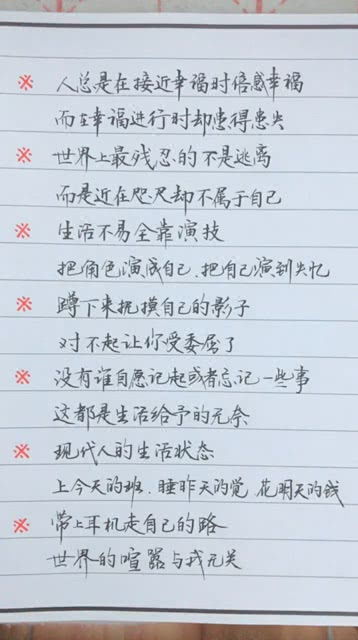 ※ 人总是在接近幸福时倍感幸福
而在幸福进行时却患得患失
※ 世界上最残忍的不是逃离
而是近在咫尺却不属于自己
※ 生活不易全靠演技
把角色演成自己.把自己演到失忆
※ 蹲下来抚摸自己的影子
对不起让你受委屈了
※ 没有谁自愿记起或者忘记一些事
这都是生活给予的无奈
※ 现代人的生活状态
上今天的班.睡昨天的觉.花明天的钱
※ 带上耳机走自己的路
世界的喧嚣与我无关